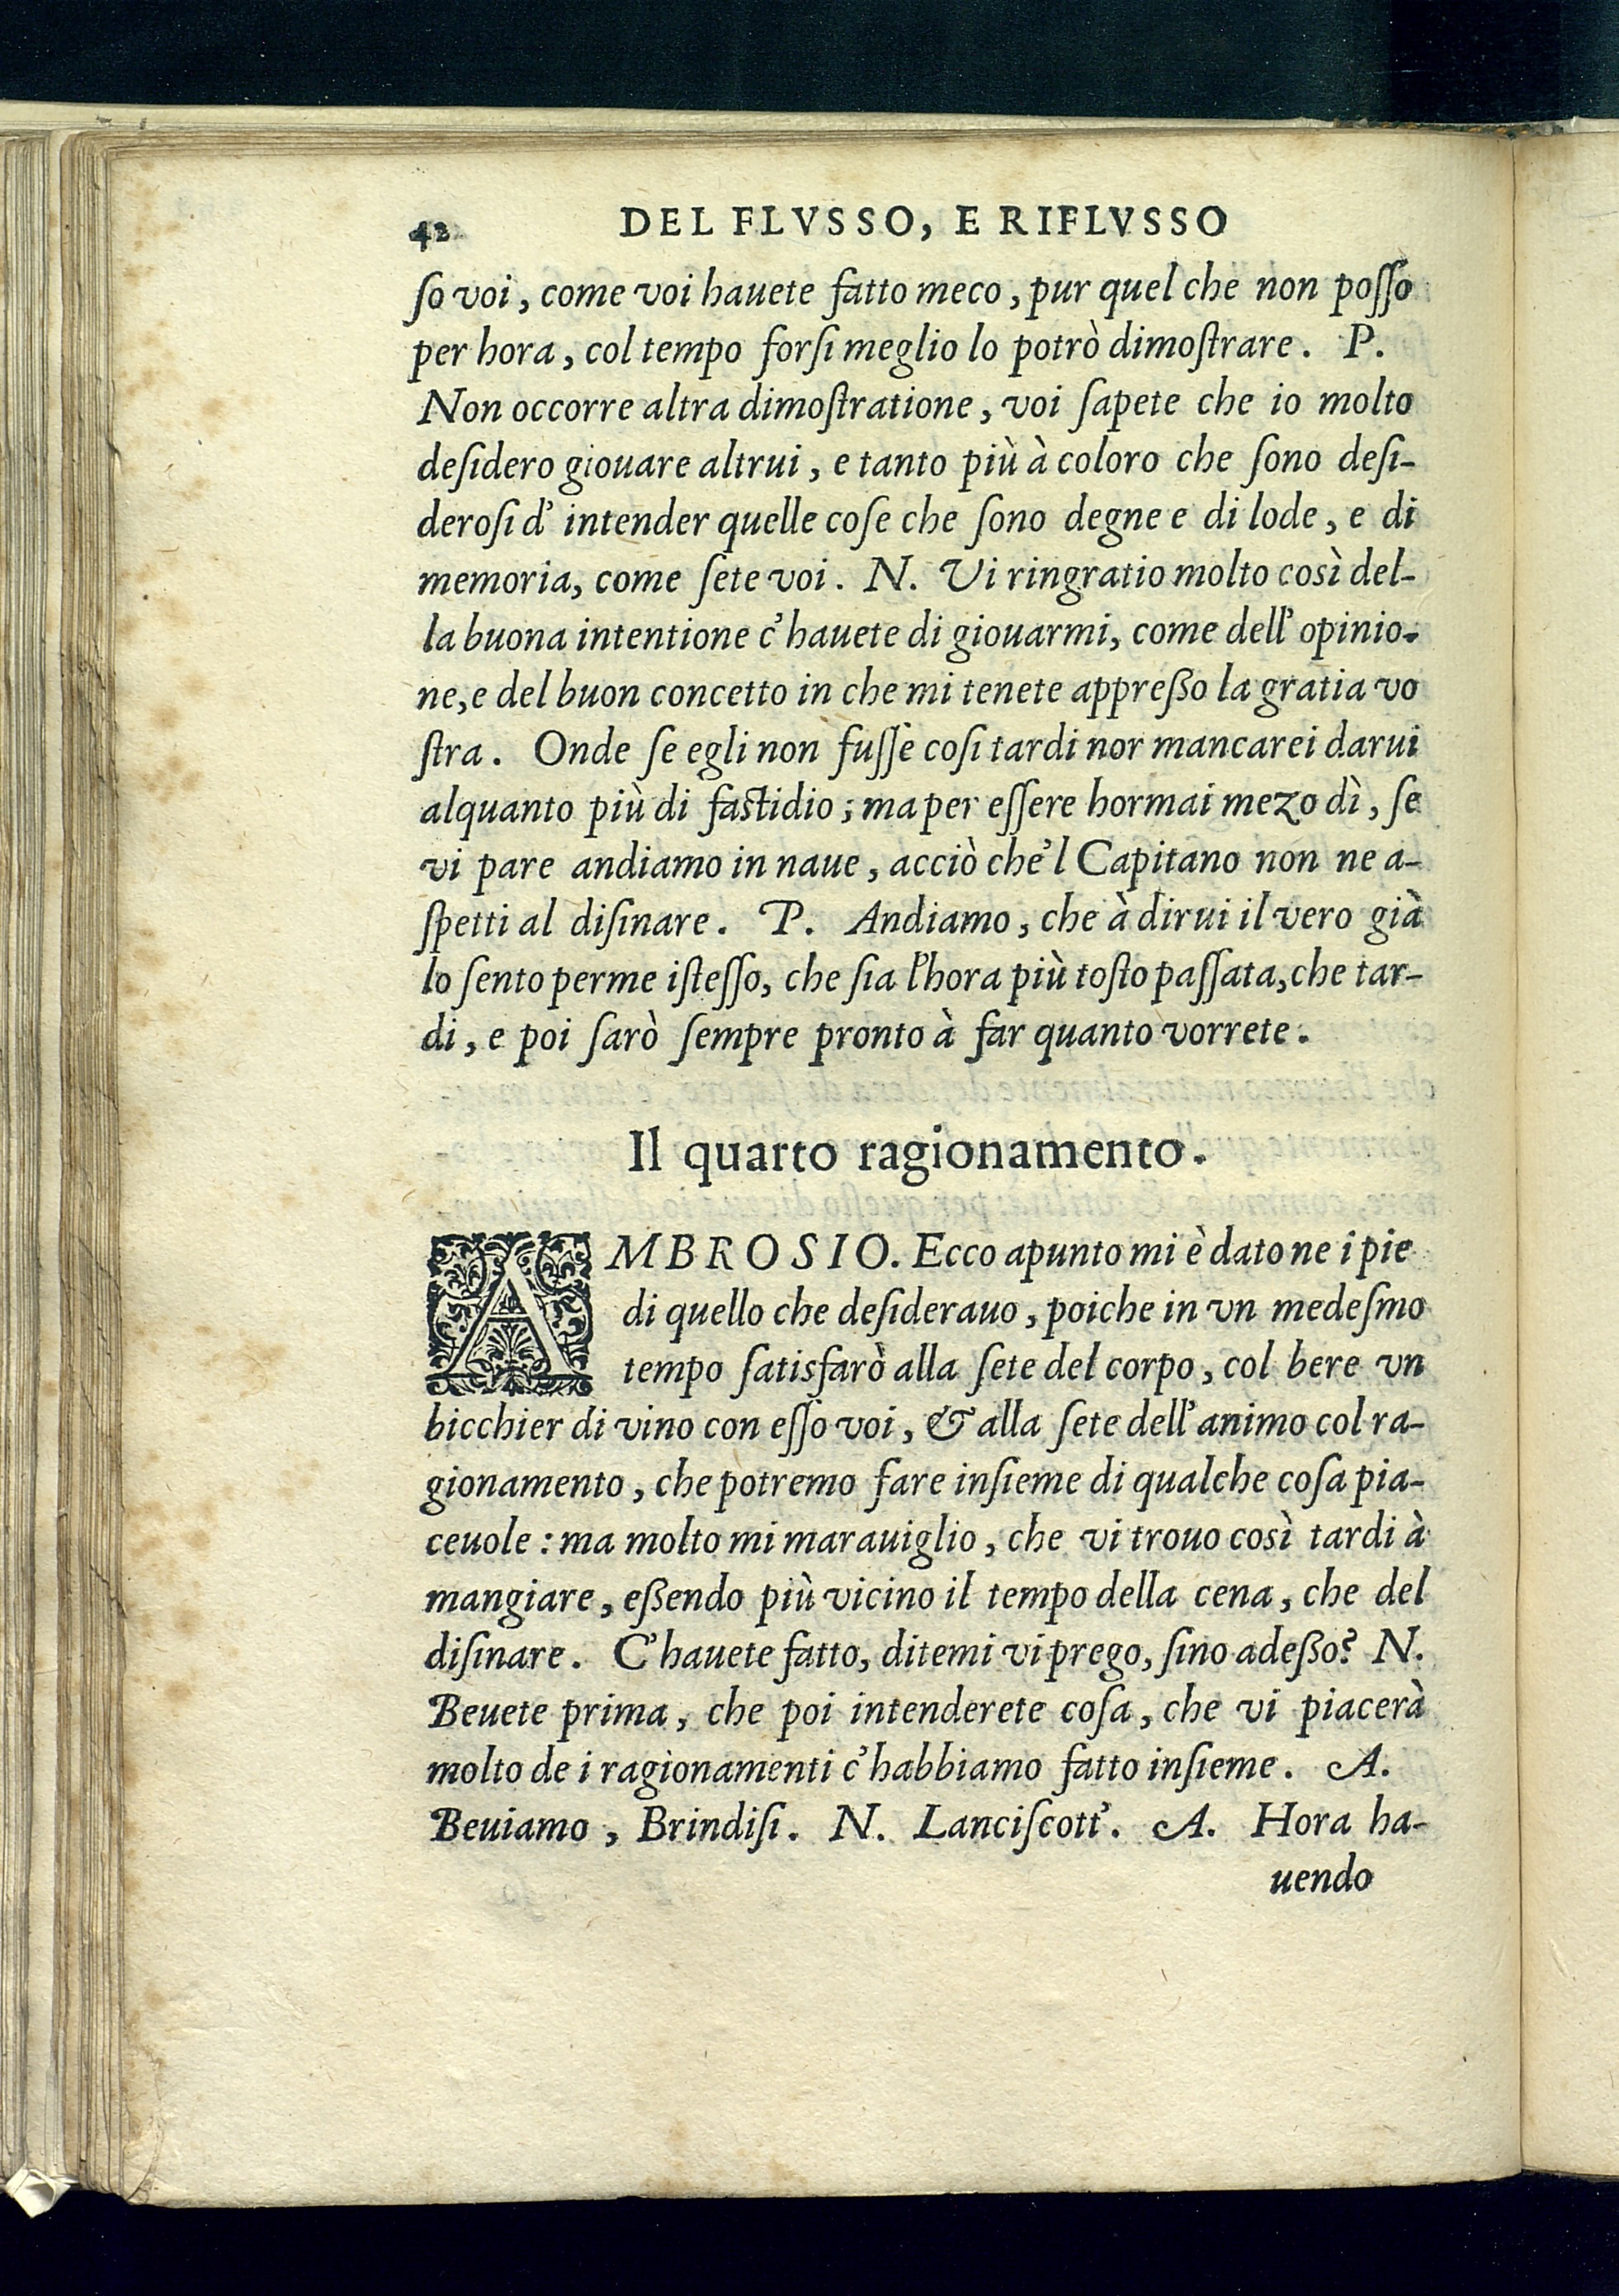 42 DEL FLVSSO, E RIFLVSSO
ſo voi, come voi hauete fatto meco, pur quel che non poſſo
per hora, col tempo forſi meglio lo potrò dimoſtrare. P.
Non occorre altra dimoſtratione, voi ſapete che io molto
deſidero giouare altrui, e tanto più à coloro che ſono deſi-
deroſi d' intender quelle coſe che ſono degne e di lode, e di
memoria, come ſete voi. N. Vi ringratio molto così del-
la buona intentione c' hauete di giouarmi, come dell' opinio-
ne, e del buon concetto in che mi tenete appreßo la gratia vo
ſtra. Onde ſe egli non fuſſe coſi tardi nor mancarei darui
alquanto più di fastidio; ma per eſſere hormai mezo dì, ſe
vi pare andiamo in naue, acciò che'l Capitano non ne a-
ſpetti al diſinare. P. Andiamo, che à dirui il vero già
lo ſento per me iſteſſo, che ſia l'hora più toſto paſſata, che tar-
di, e poi ſarò ſempre pronto à far quanto vorrete.
Il quarto ragionamento.
AMBROSIO. Ecco apunto mi è dato ne i pie
di quello che deſiderauo, poiche in vn medeſmo
tempo ſatisfarò alla ſete del corpo, col bere vn
bicchier di vino con eſſo voi, & alla ſete dell' animo col ra-
gionamento, che potremo fare inſieme di qualche coſa pia-
ceuole: ma molto mi marauiglio, che vi trouo così tardi à
mangiare, eßendo più vicino il tempo della cena, che del
diſinare. C' hauete fatto, ditemi vi prego, ſino adeßo? N.
Beuete prima, che poi intenderete coſa, che vi piacerà
molto de i ragionamenti c' habbiamo fatto inſieme. A.
Beuiamo, Brindiſi. N. Lanciſcott'. A. Hora ha-
uendo